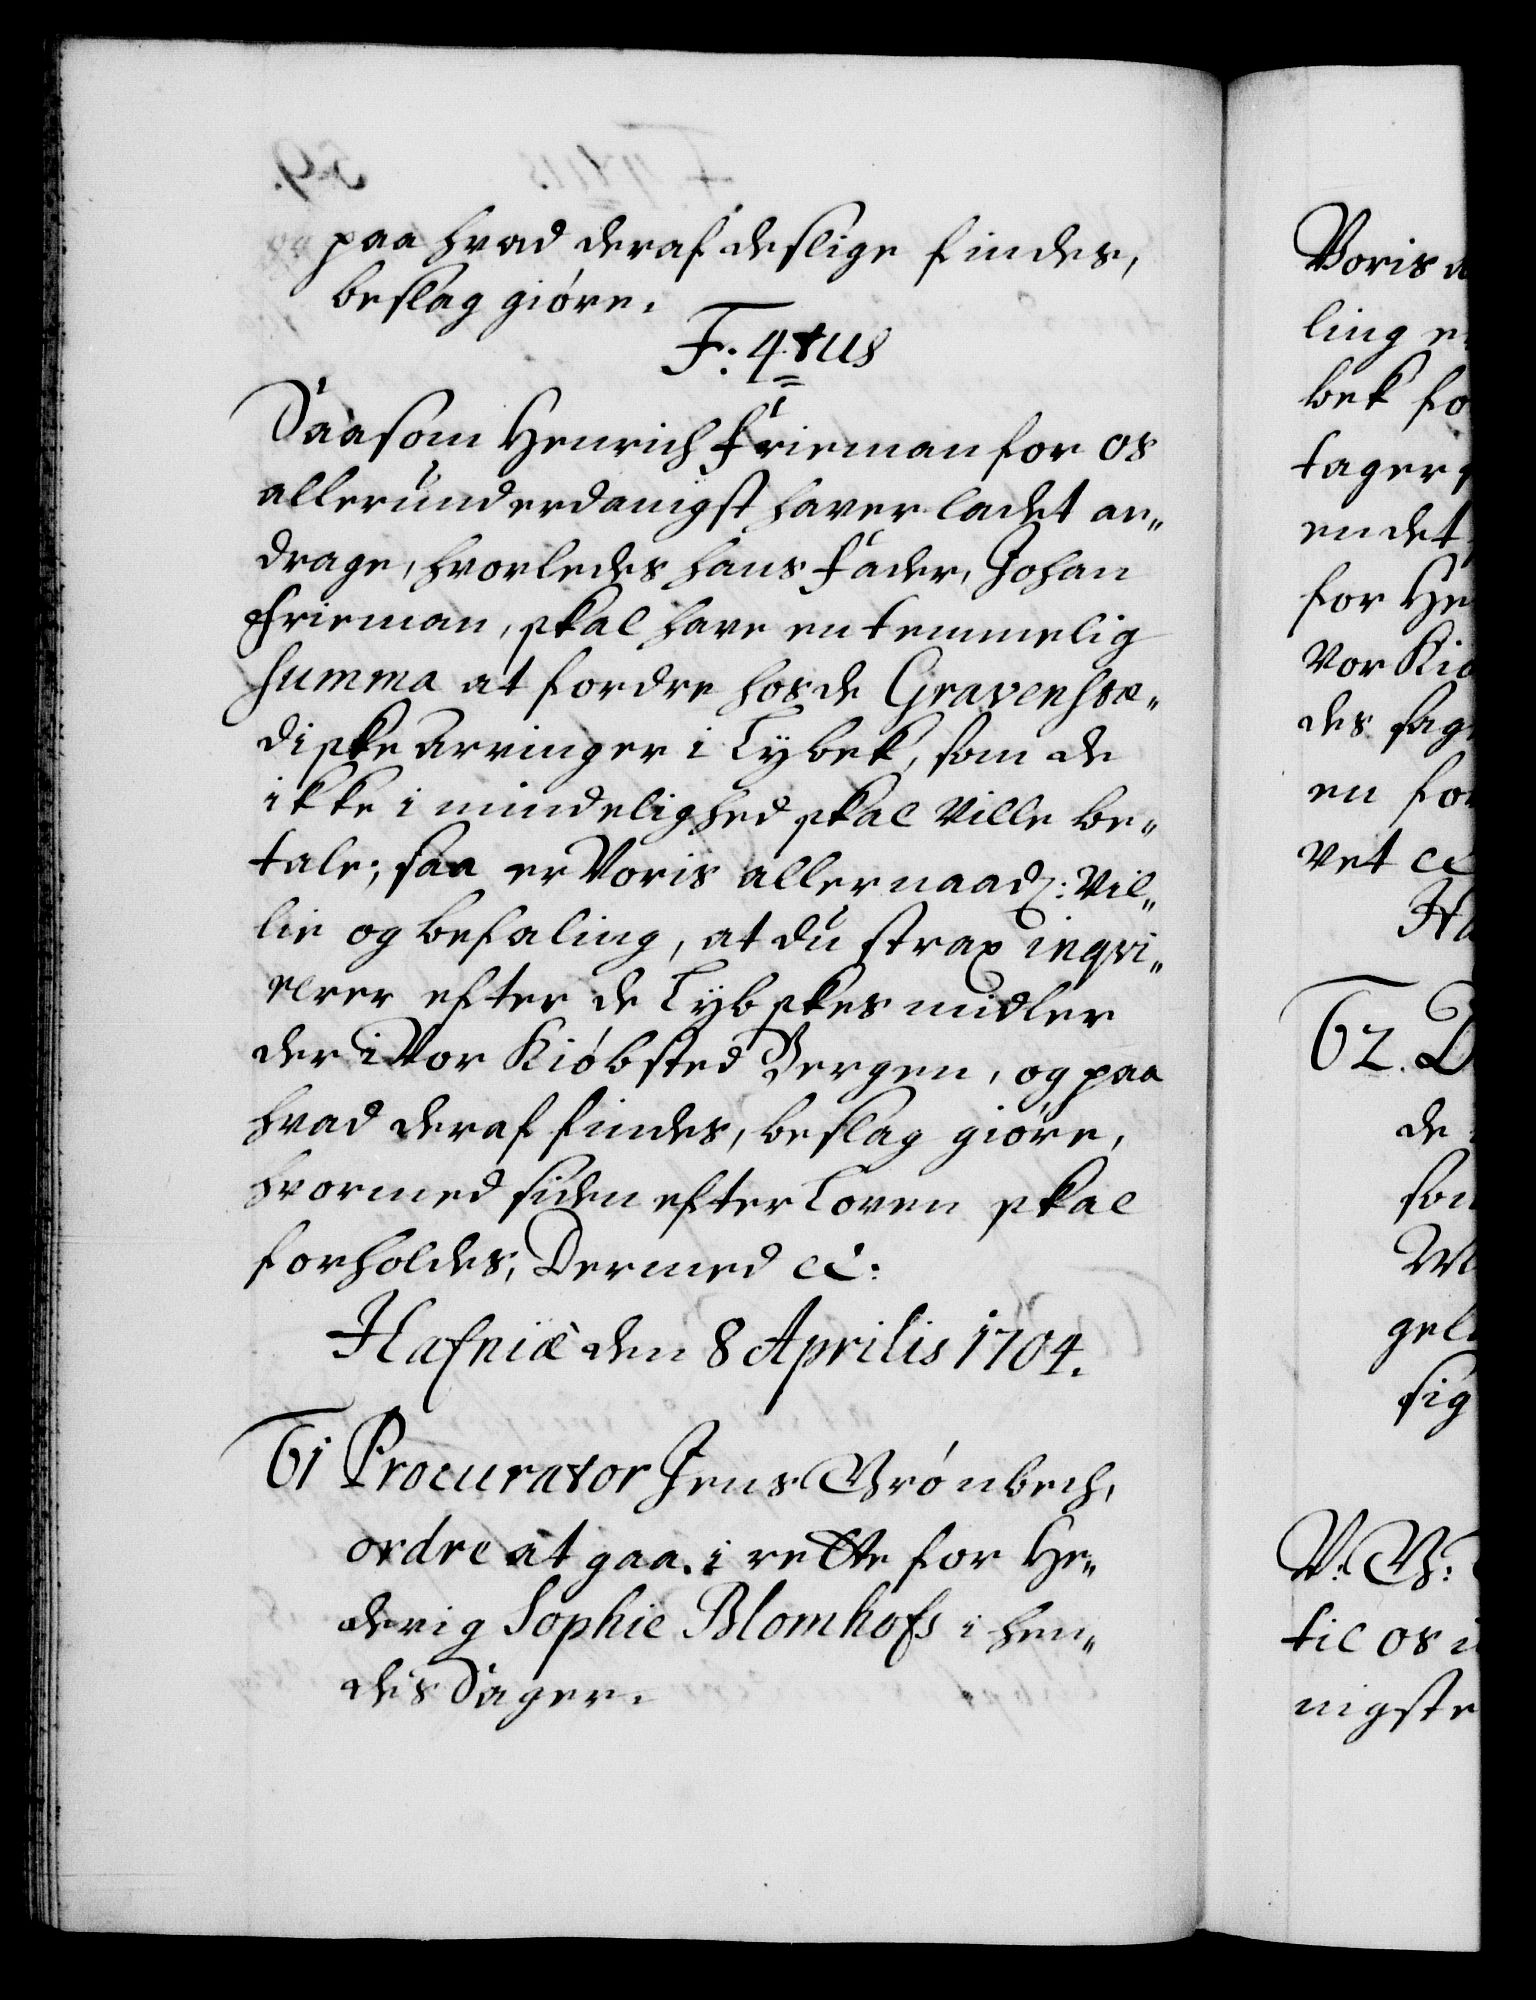 paa hvad deraf deslige findes,
beslag giøre.
F: 4tus
Saasom Henrich Frieman for os
allerunderdanigst haver ladet an„
drage, hvorledes hans fader, Johan
Frieman, skal have en temmelig
summa at fordre hos de Gravenhor„
diske arvinger i Lybek, som de
ikke i mindelighed skal ville be„
tale; saa er Voris allernaad: Vil„
lie og befaling, at du strax inqvi„
rerer efter de Lybskes midler
der i Vor Kiøbsted Bergen, og paa
hvad deraf findes, beslag giøre,
hvormed siden efter Loven skal
forholdes, Dermed ec:
Hafniæ den 8 Aprilis 1704.
61 Procurator Jens Grønbech,
ordre at gaa i rette for He„
devig Sophie Blomhofs i hen„
des Sager.
Voris
ling
bek
tager
en det
for
Vor
des
en
vet
62.
de
sig
til os
nigste